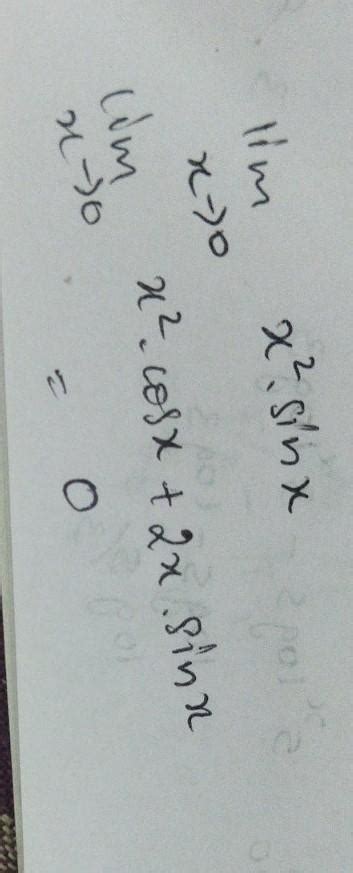 lim x→0 x². sinx
lim x→0 x². cosx + 2x. sinx
= 0